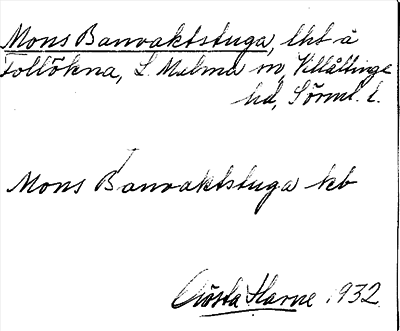 Mons Banvaktstuga, lht å
Tollökna, L. Malma sn, Villåttinge
hd, Sörml. l.
Mons Banvaktstuga kb
Gösta Harne 1932